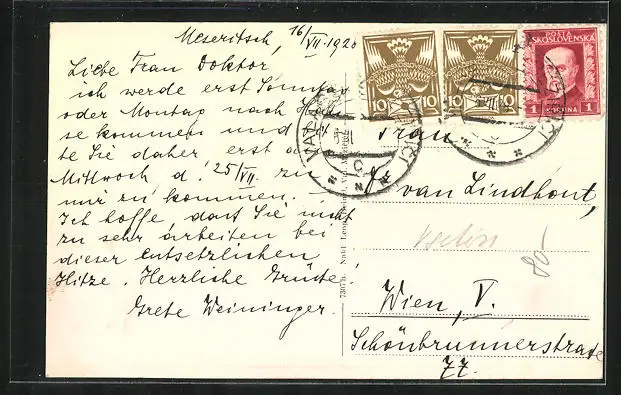 Meseritsch, 16/VII. 1920
Liebe Frau Doktor
ich werde erst Sonntag
oder Montag nach Hau-
se kommen und
te Sie daher erst
Mittwoch d. 25/VII. zu
mir zu kommen. –
Ich hoffe dass Sie nicht
zu sehr arbeiten bei
dieser entsetzlichen
Hitze. Herzliche Grüsse!
Grete Weininger.
POŠTA
ČESKOSLOVENSKÁ
10 10
10
1 KORUNA 1
C
Frau
Dr van Lindhout,
80
Wien, V.
Schönbrunnerstrasse
77.